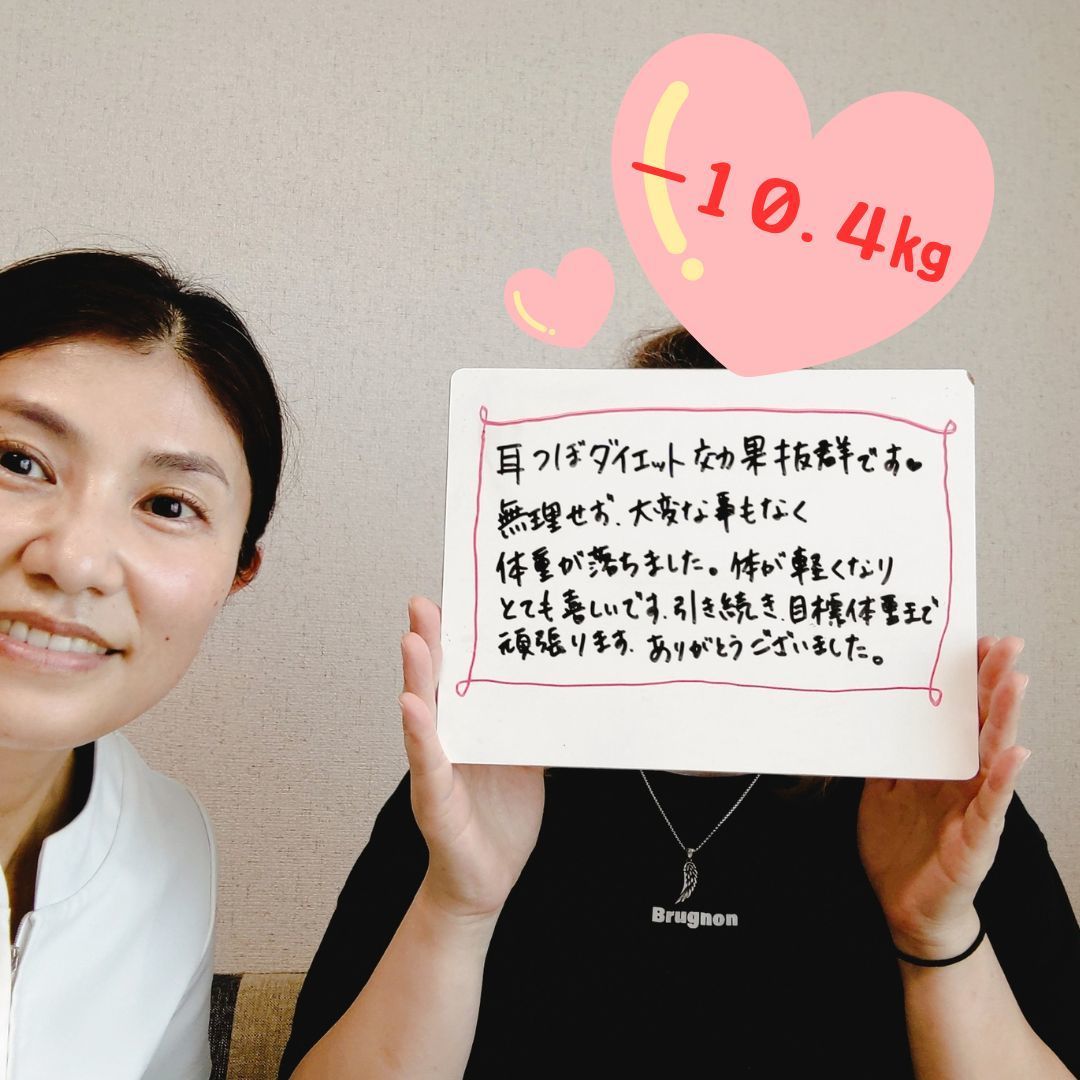 -10.4kg
耳つぼダイエット効果抜群です♥
無理せず、大変な事もなく
体重が落ちました。体が軽くなり
とても喜しいです。引き続き、目標体重まで
頑張ります。ありがとうございました。
Brugnon